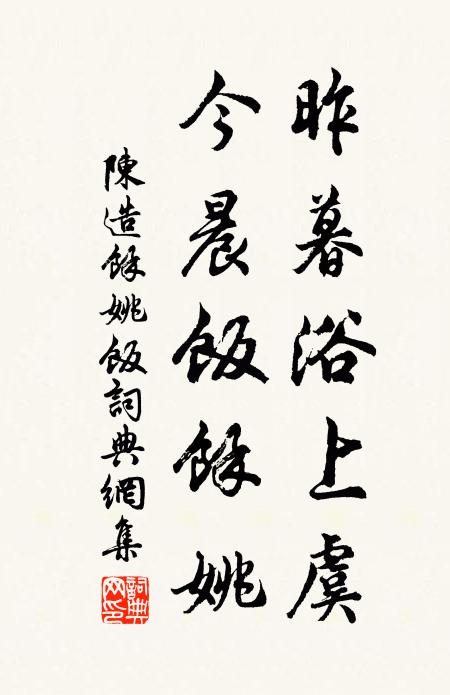 昨暮浴上虞
今晨飯餘姚
陳造餘姚飯詞典網集
詞典網印